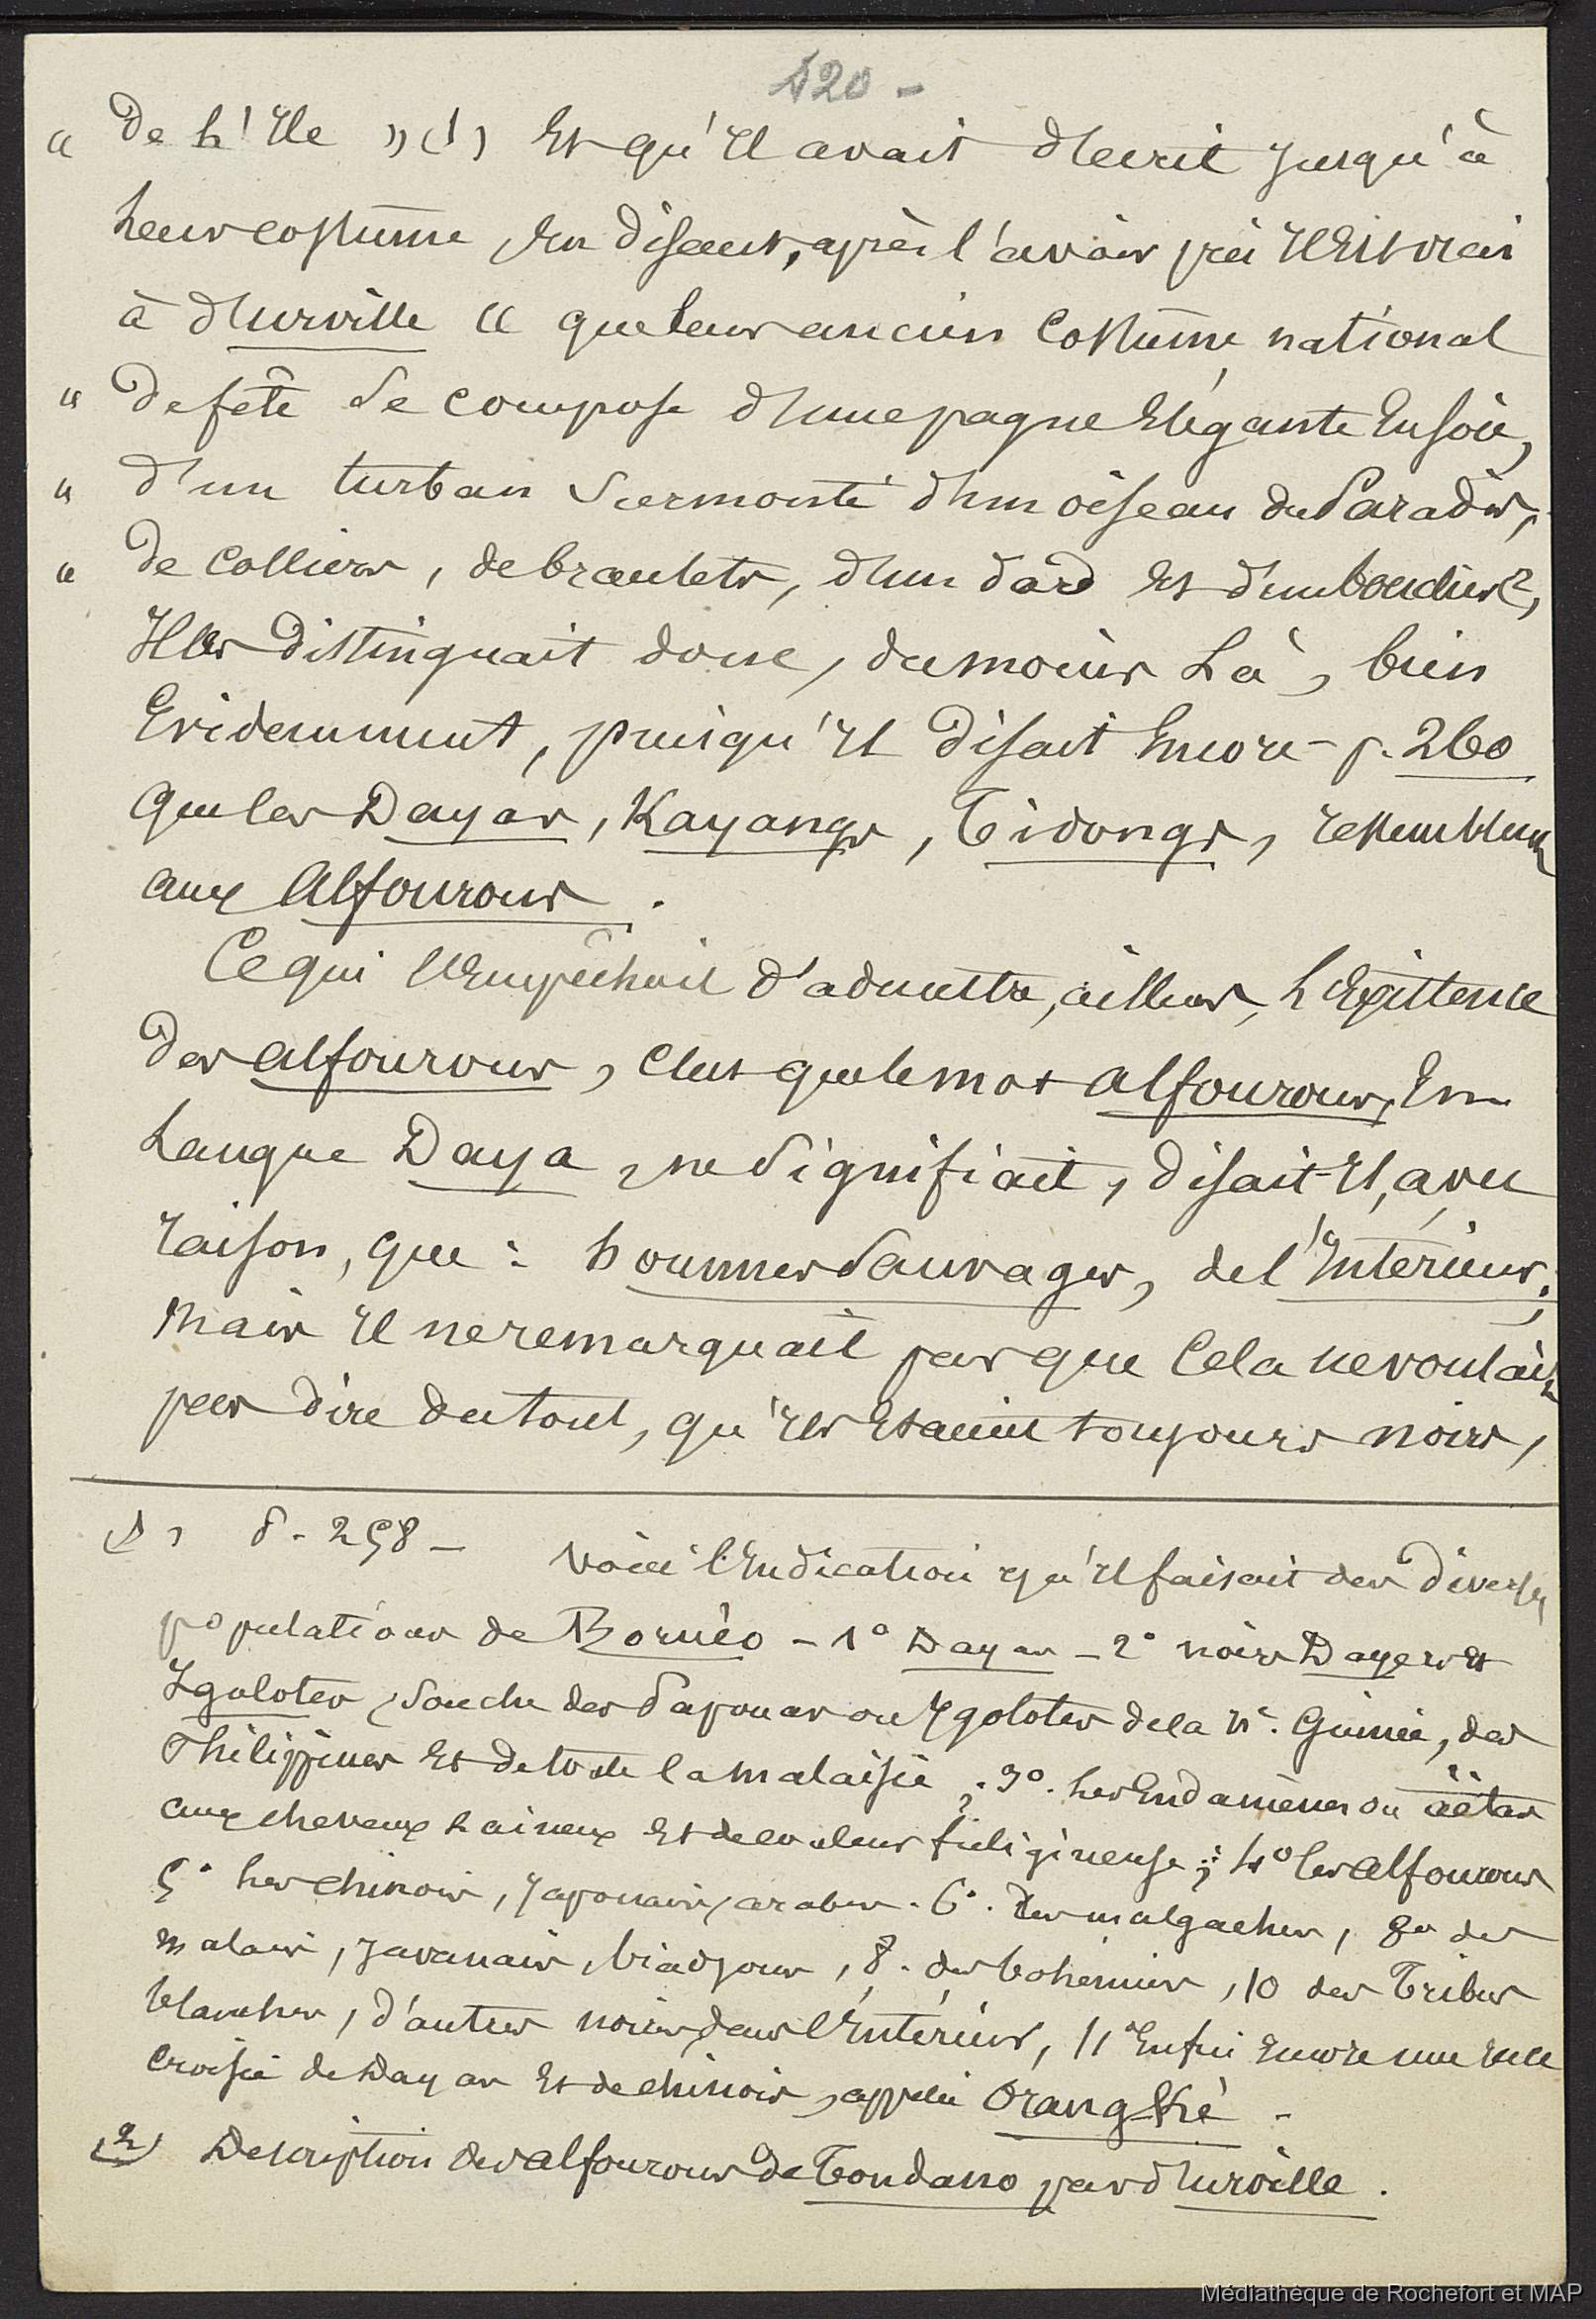 120 -
" de l'Ile » (1) et qu'il avait décrit jusqu'à
leur costume, en disant, après l'avoir pris il est vrai
à d'Urville « que leur ancien costume national
" de fête se compose d'une pagne élégante en soie,
" d'un turban surmonté d'un oiseau du Paradis,
" de colliers, de bracelets, d'un dard et d'un bouclier 2,
Il les distinguait donc, du moins là, bien
évidemment, puisqu'il disait encore - p. 260
que les Dayas, Kayangs, Tidongs, ressemblent
aux Alfourous.
Ce qui l'empêchait d'admettre, ailleurs, l'existence
des alfourous, c'est que le mot alfourous, en
langue Daya, ne signifiait, disait-il, avec
raison, que : hommes Sauvages, de l'intérieur ;
mais il ne remarquait pas que cela ne voulait
pas dire du tout, qu'ils étaient toujours noirs,
(1) P. 258 - Voici l'indication qu'il faisait des diverses
populations de Bornéo - 1° Dayas - 2° noirs Dayers et
Igolotes, souche des Papouas ou Ygolotes de la Nle. Guinée, des
Philippines et de toute la malaisie ; 3°. les Endamènes ou aëtas
aux cheveux laineux et de couleur fuligineuse ; 4° les alfourous
5° les chinois, Japonais, arabes. 6°. des malgaches, 8° des
malais, Javanais, biadjous, 8. des bohémiens, 10 des Tribus
blanches, d'autres noires dans l'intérieur, 11° Enfin encore une race
croisée de Dayas et de chinois, appelée Orang Kié -
(2) Description des alfourous de Tondano par d'Urville.
Médiathèque de Rochefort et MAP